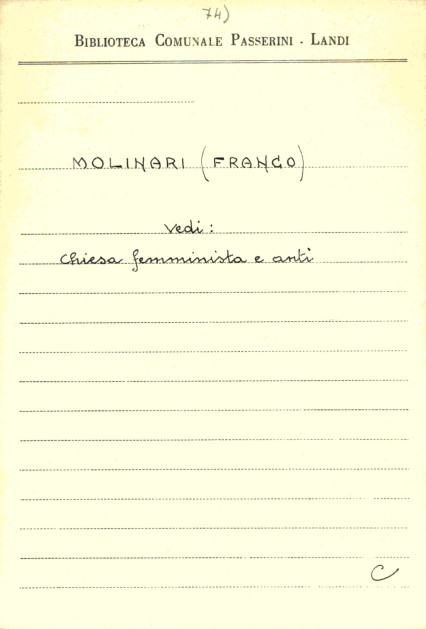 74)
BIBLIOTECA COMUNALE PASSERINI - LANDI
MOLINARI (FRANCO)
Vedi:
Chiesa femminista e anti
C